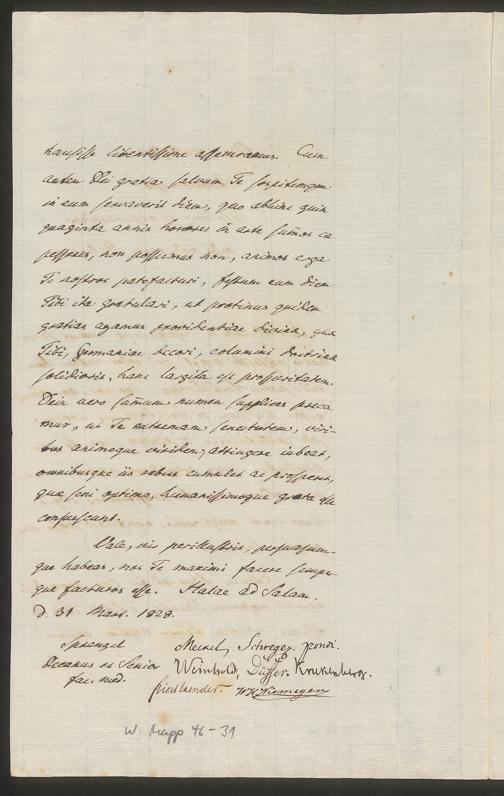 hausisse libentissime asseveramus. Cum
autem Dei gratia salvum Te sospitemque
in eum servaverit diem, quo abhinc quin
quaginta annis honores in arte sum̄os ca
pesseres, non possumus non, animos erga
Te nostros patefacturi, festum eum diem
Tibi ita gratulari, ut protinus quidem
gratias agamus providentiae divinae, quae
Tibi, Germaniae decori, columini doctrinae
solidioris, hanc largita est prosperitatem.
Dein vero sum̄um numen supplices preca
mur, ut Te extremam senectutem, viri-
bus animoque viridem, attingere iubeat,
omnibusque iis rebus cumulet ac prosperet,
quae seni optimo, humanissimoque grata esse
consuescunt.
Vale, vir perillustris, persuasum-
que habeas, nos Te maximi facere semper
que facturos esse. Halae ad Salam,
d. 31 Mart. 1828.
Sprengel Meckel, Schreger,
Decanus et Senior Weinhold, Düffer. Krukenberg.
fac. med. Friedlaender. WHNiemeyer
W. Mapp 46-31